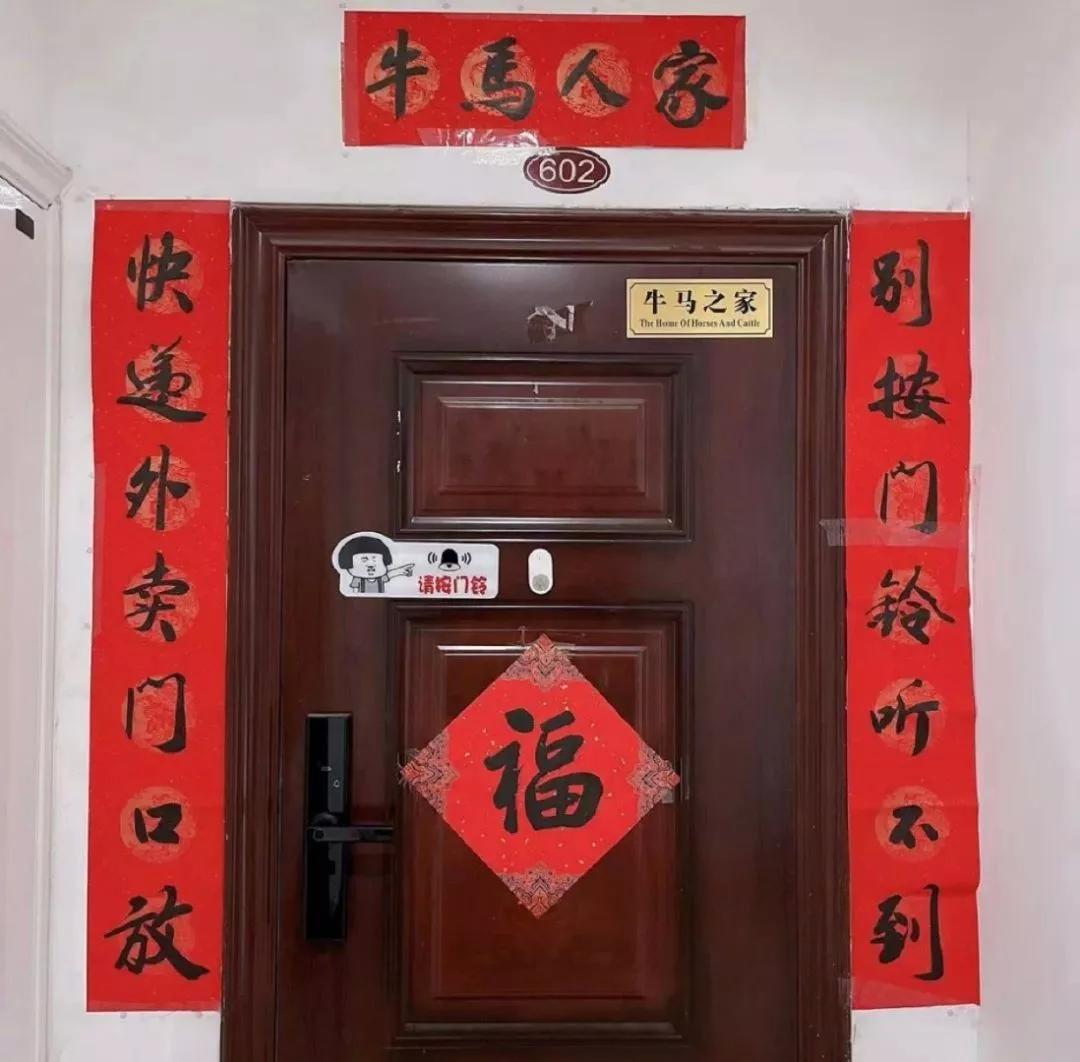 牛馬人家
602
快递外卖門口放
别按門鈴听不到
牛马之家
The Home Of Horses And Cattle
请按门铃
福